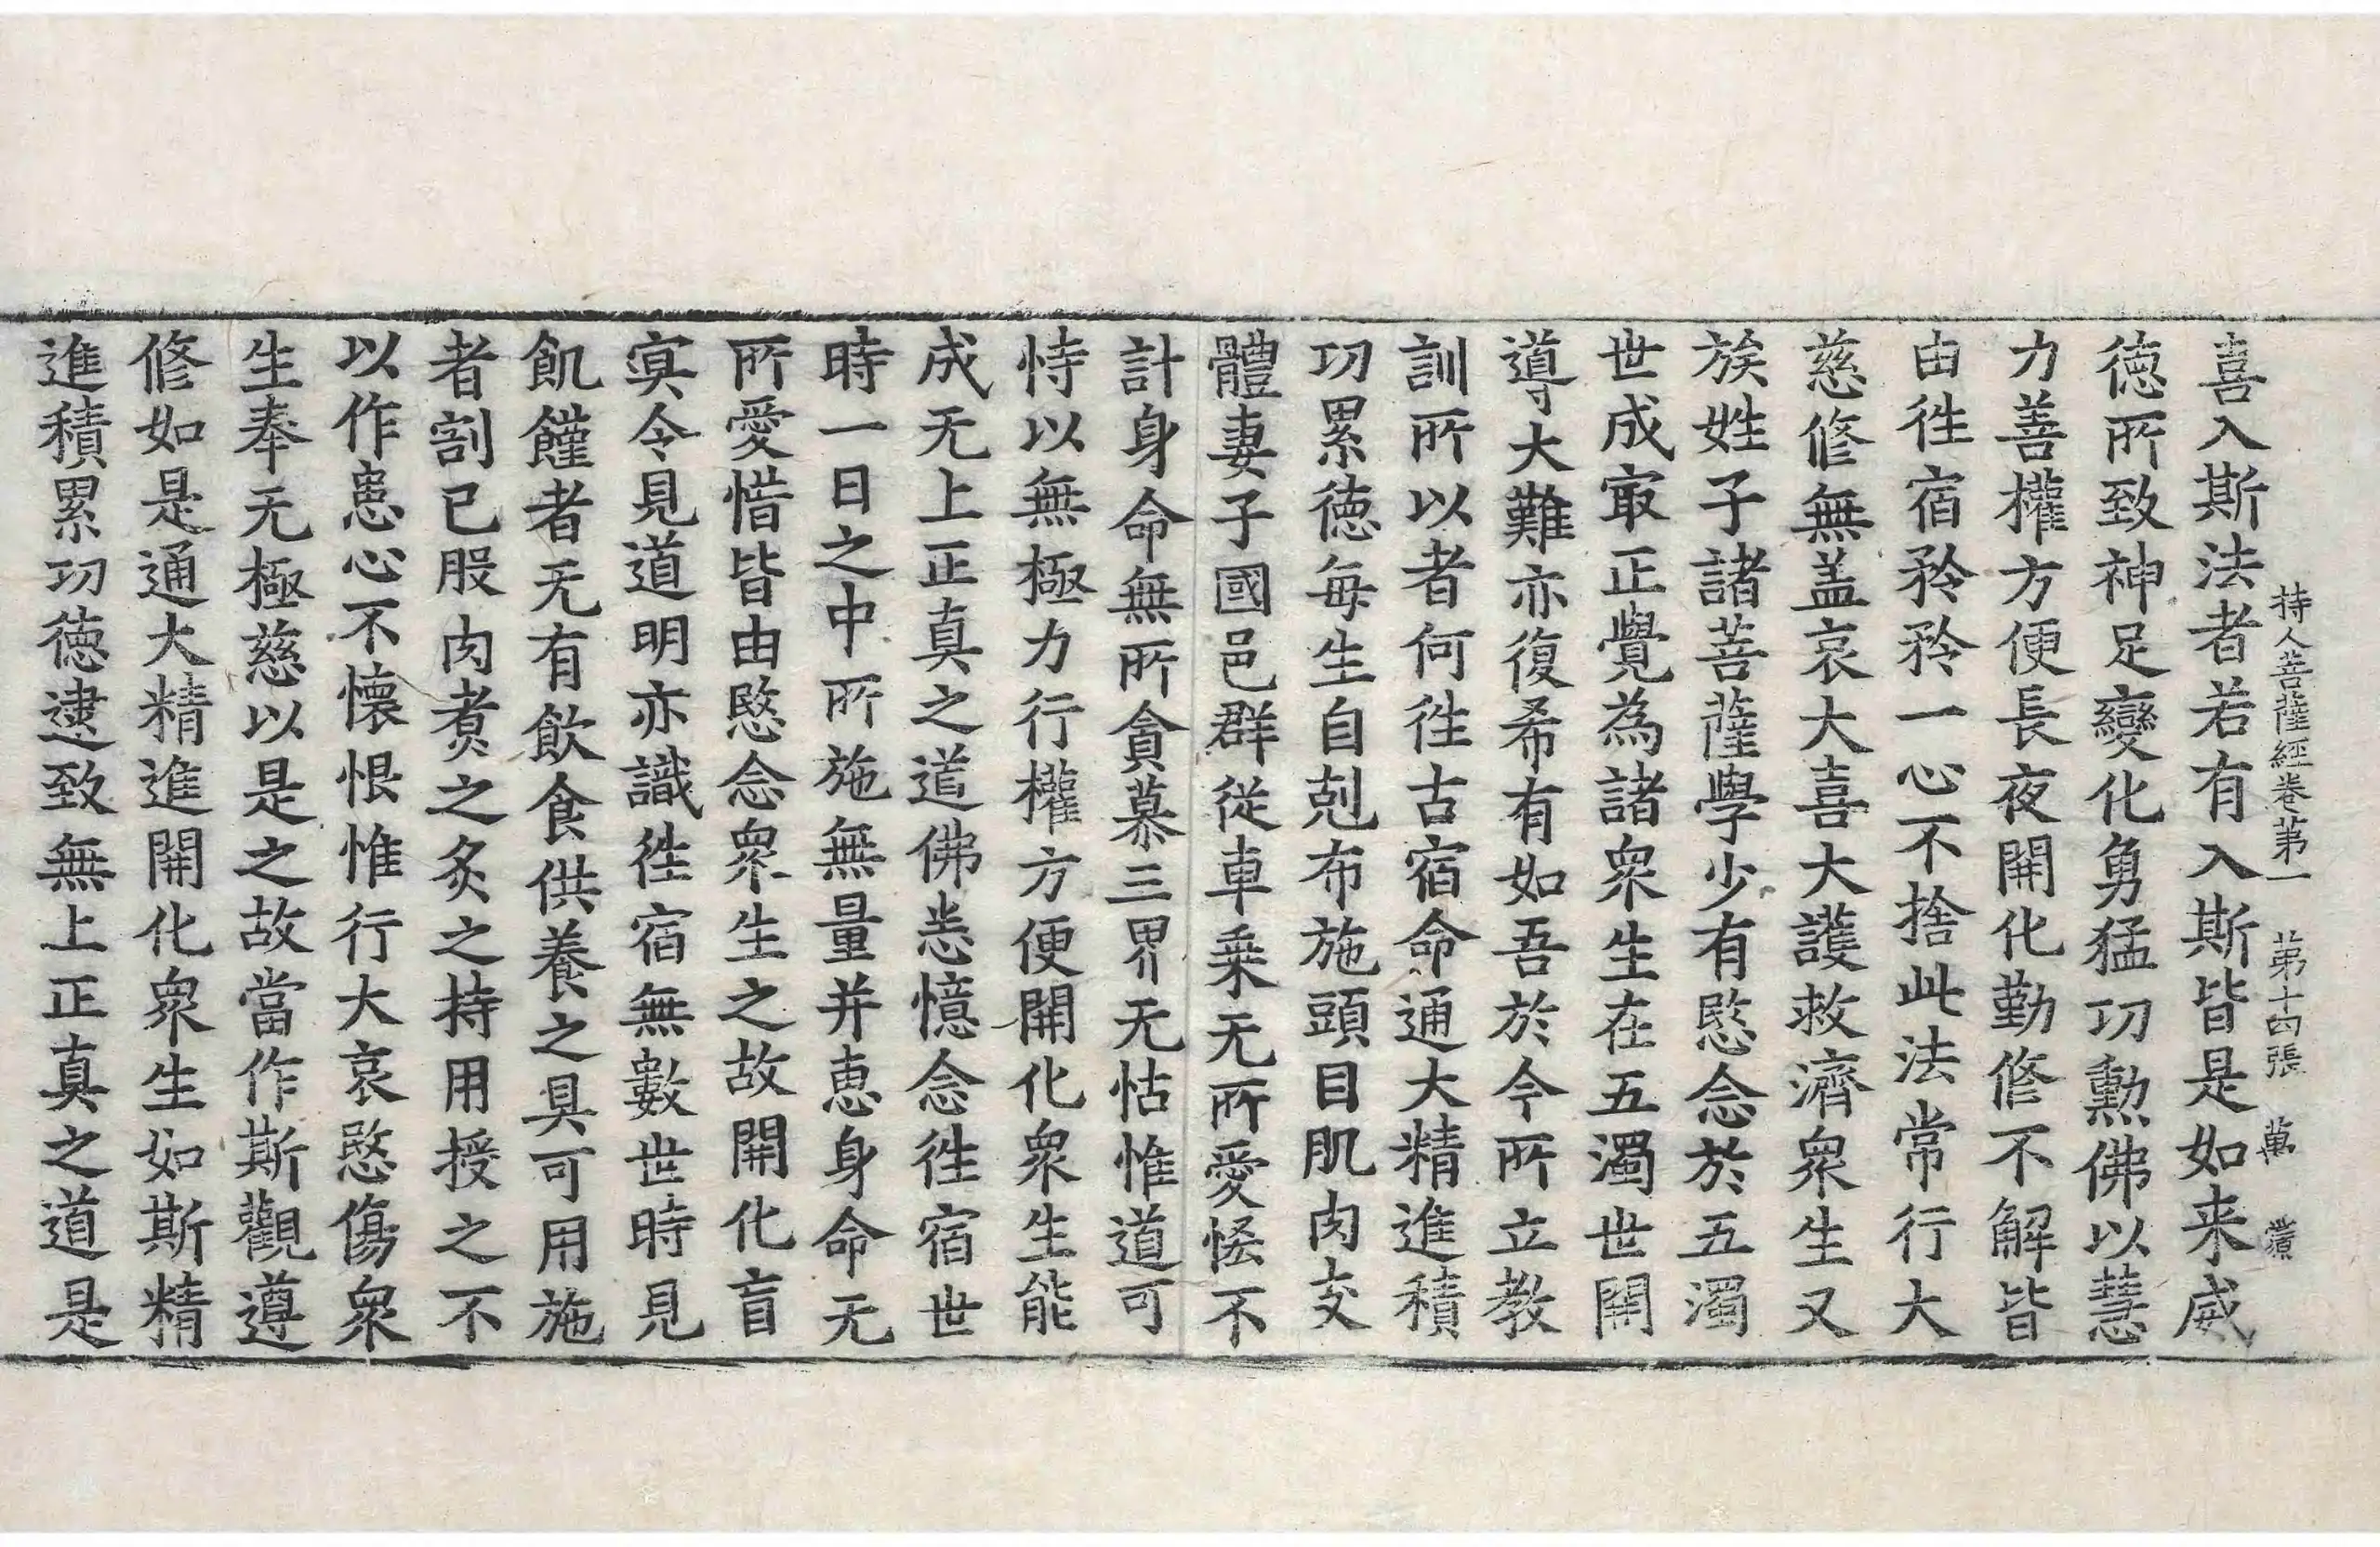 持人菩薩經卷第一 第十四張 萬
喜入斯法者若有入斯皆是如来威
徳所致神足變化勇猛功勲佛以慧
力善權方便長夜開化勤修不解皆
由徃宿矜矜一心不捨此法常行大
慈修無盖哀大喜大護救濟衆生又
族姓子諸菩薩學少有愍念於五濁
世成㝡正覺為諸衆生在五濁世開
導大難亦復希有如吾於今所立教
訓所以者何徃古宿命通大精進積
功累徳毎生自剋布施頭目肌肉支
體妻子國邑群従車乗无所愛恡不
計身命無所貪慕三界无怙惟道可
恃以無極力行權方便開化衆生能
成无上正真之道佛悉憶念徃宿世
時一日之中所施無量并恵身命无
所愛惜皆由愍念衆生之故開化盲
冥令見道明亦識徃宿無數世時見
飢饉者无有飲食供養之具可用施
者割己股肉煮之炙之持用授之不
以作患心不懐恨惟行大哀愍傷衆
生奉无極慈以是之故當作斯觀遵
修如是通大精進開化衆生如斯精
進積累功徳逮致無上正真之道是